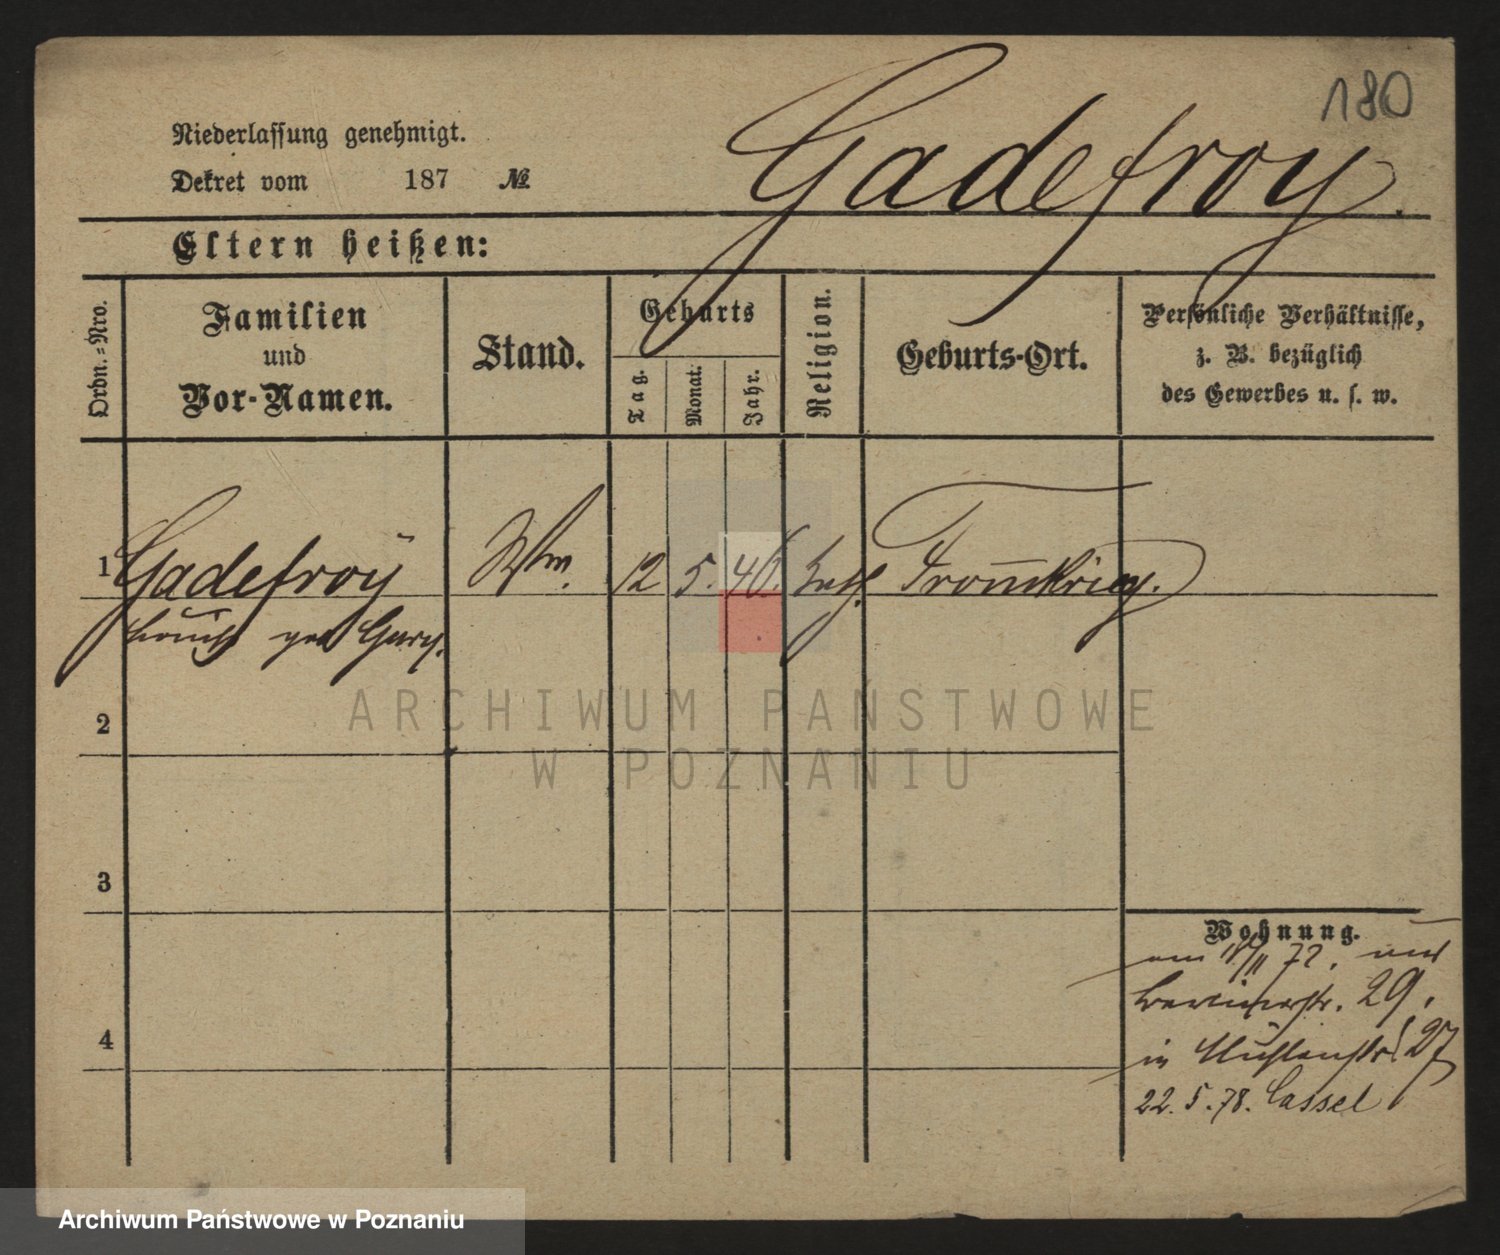 180
Gadefroy.
Niederlassung genehmigt.
Dekret vom 187 №
Eltern heißen:
Ordn.-Nro.
Familien
und
Vor-Namen.
Stand.
Geburts
Tag.
Monat.
Jahr.
Religion.
Geburts-Ort.
Persönliche Verhältnisse,
z. B. bezüglich
des Gewerbes u. s. w.
1 Gadefroÿ Ww. 12 5. 46. kath.
geb
2
3
4
Wohnung.
am 72.
29.
in Mühlenstr. 27
22. 5. 78. Cassel
ARCHIWUM PAŃSTWOWE
W POZNANIU
Archiwum Państwowe w Poznaniu